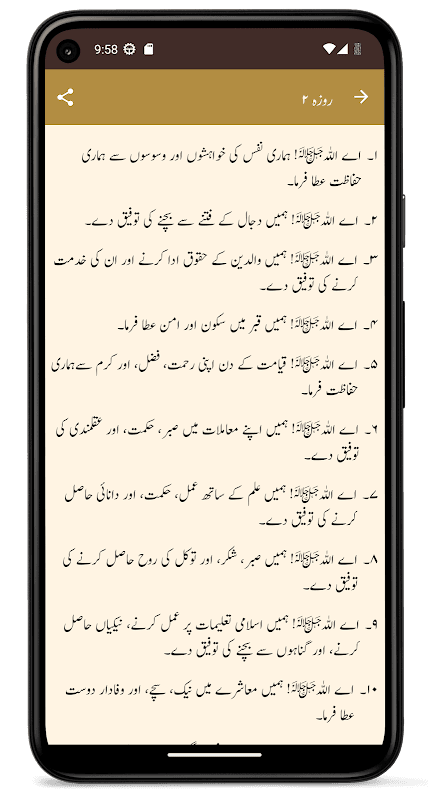 9:58
روزہ ۲
۱۔ اے اللہﷻ! ہماری نفس کی خواہشوں اور وسوسوں سے ہماری
حفاظت عطا فرما۔
۲۔ اے اللہﷻ! ہمیں دجال کے فتنے سے بچنے کی توفیق دے۔
۳۔ اے اللہﷻ! ہمیں والدین کے حقوق ادا کرنے اور ان کی خدمت
کرنے کی توفیق دے۔
۴۔ اے اللہﷻ! ہمیں قبر میں سکون اور امن عطا فرما۔
۵۔ اے اللہﷻ! قیامت کے دن اپنی رحمت، فضل، اور کرم سےہماری
حفاظت فرما۔
۶۔ اے اللہﷻ! ہمیں اپنے معاملات میں صبر، حکمت، اور عقلمندی کی
توفیق دے۔
۷۔ اے اللہﷻ! ہمیں علم کے ساتھ عمل، حکمت، اور دانائی حاصل
کرنے کی توفیق دے۔
۸۔ اے اللہﷻ! ہمیں صبر، شکر، اور توکل کی روح حاصل کرنے کی
توفیق دے۔
۹۔ اے اللہﷻ! ہمیں اسلامی تعلیمات پر عمل کرنے، نیکیاں حاصل
کرنے، اور گناہوں سے بچنے کی توفیق دے۔
۱۰۔ اے اللہﷻ! ہمیں معاشرے میں نیک، سچے، اور وفادار دوست
عطا فرما۔